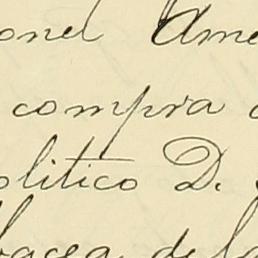 onel Ame
compra
olitico D.
bacea de la